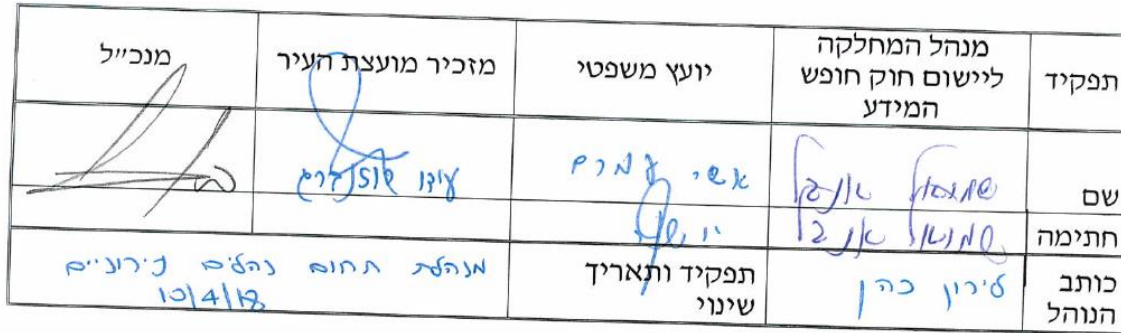 תפקיד מנהל המחלקה ליישום חוק חופש המידע יועץ משפטי מזכיר מועצת העיר מנכ״ל
שם שמואל אנג'ל אשי עמרם עודו
חתימה שמואל אנג'ל
כותב הנוהל לירון כהן תפקיד ותאריך שינוי מנהלת תחום נהלים עירוניים
10/4/18